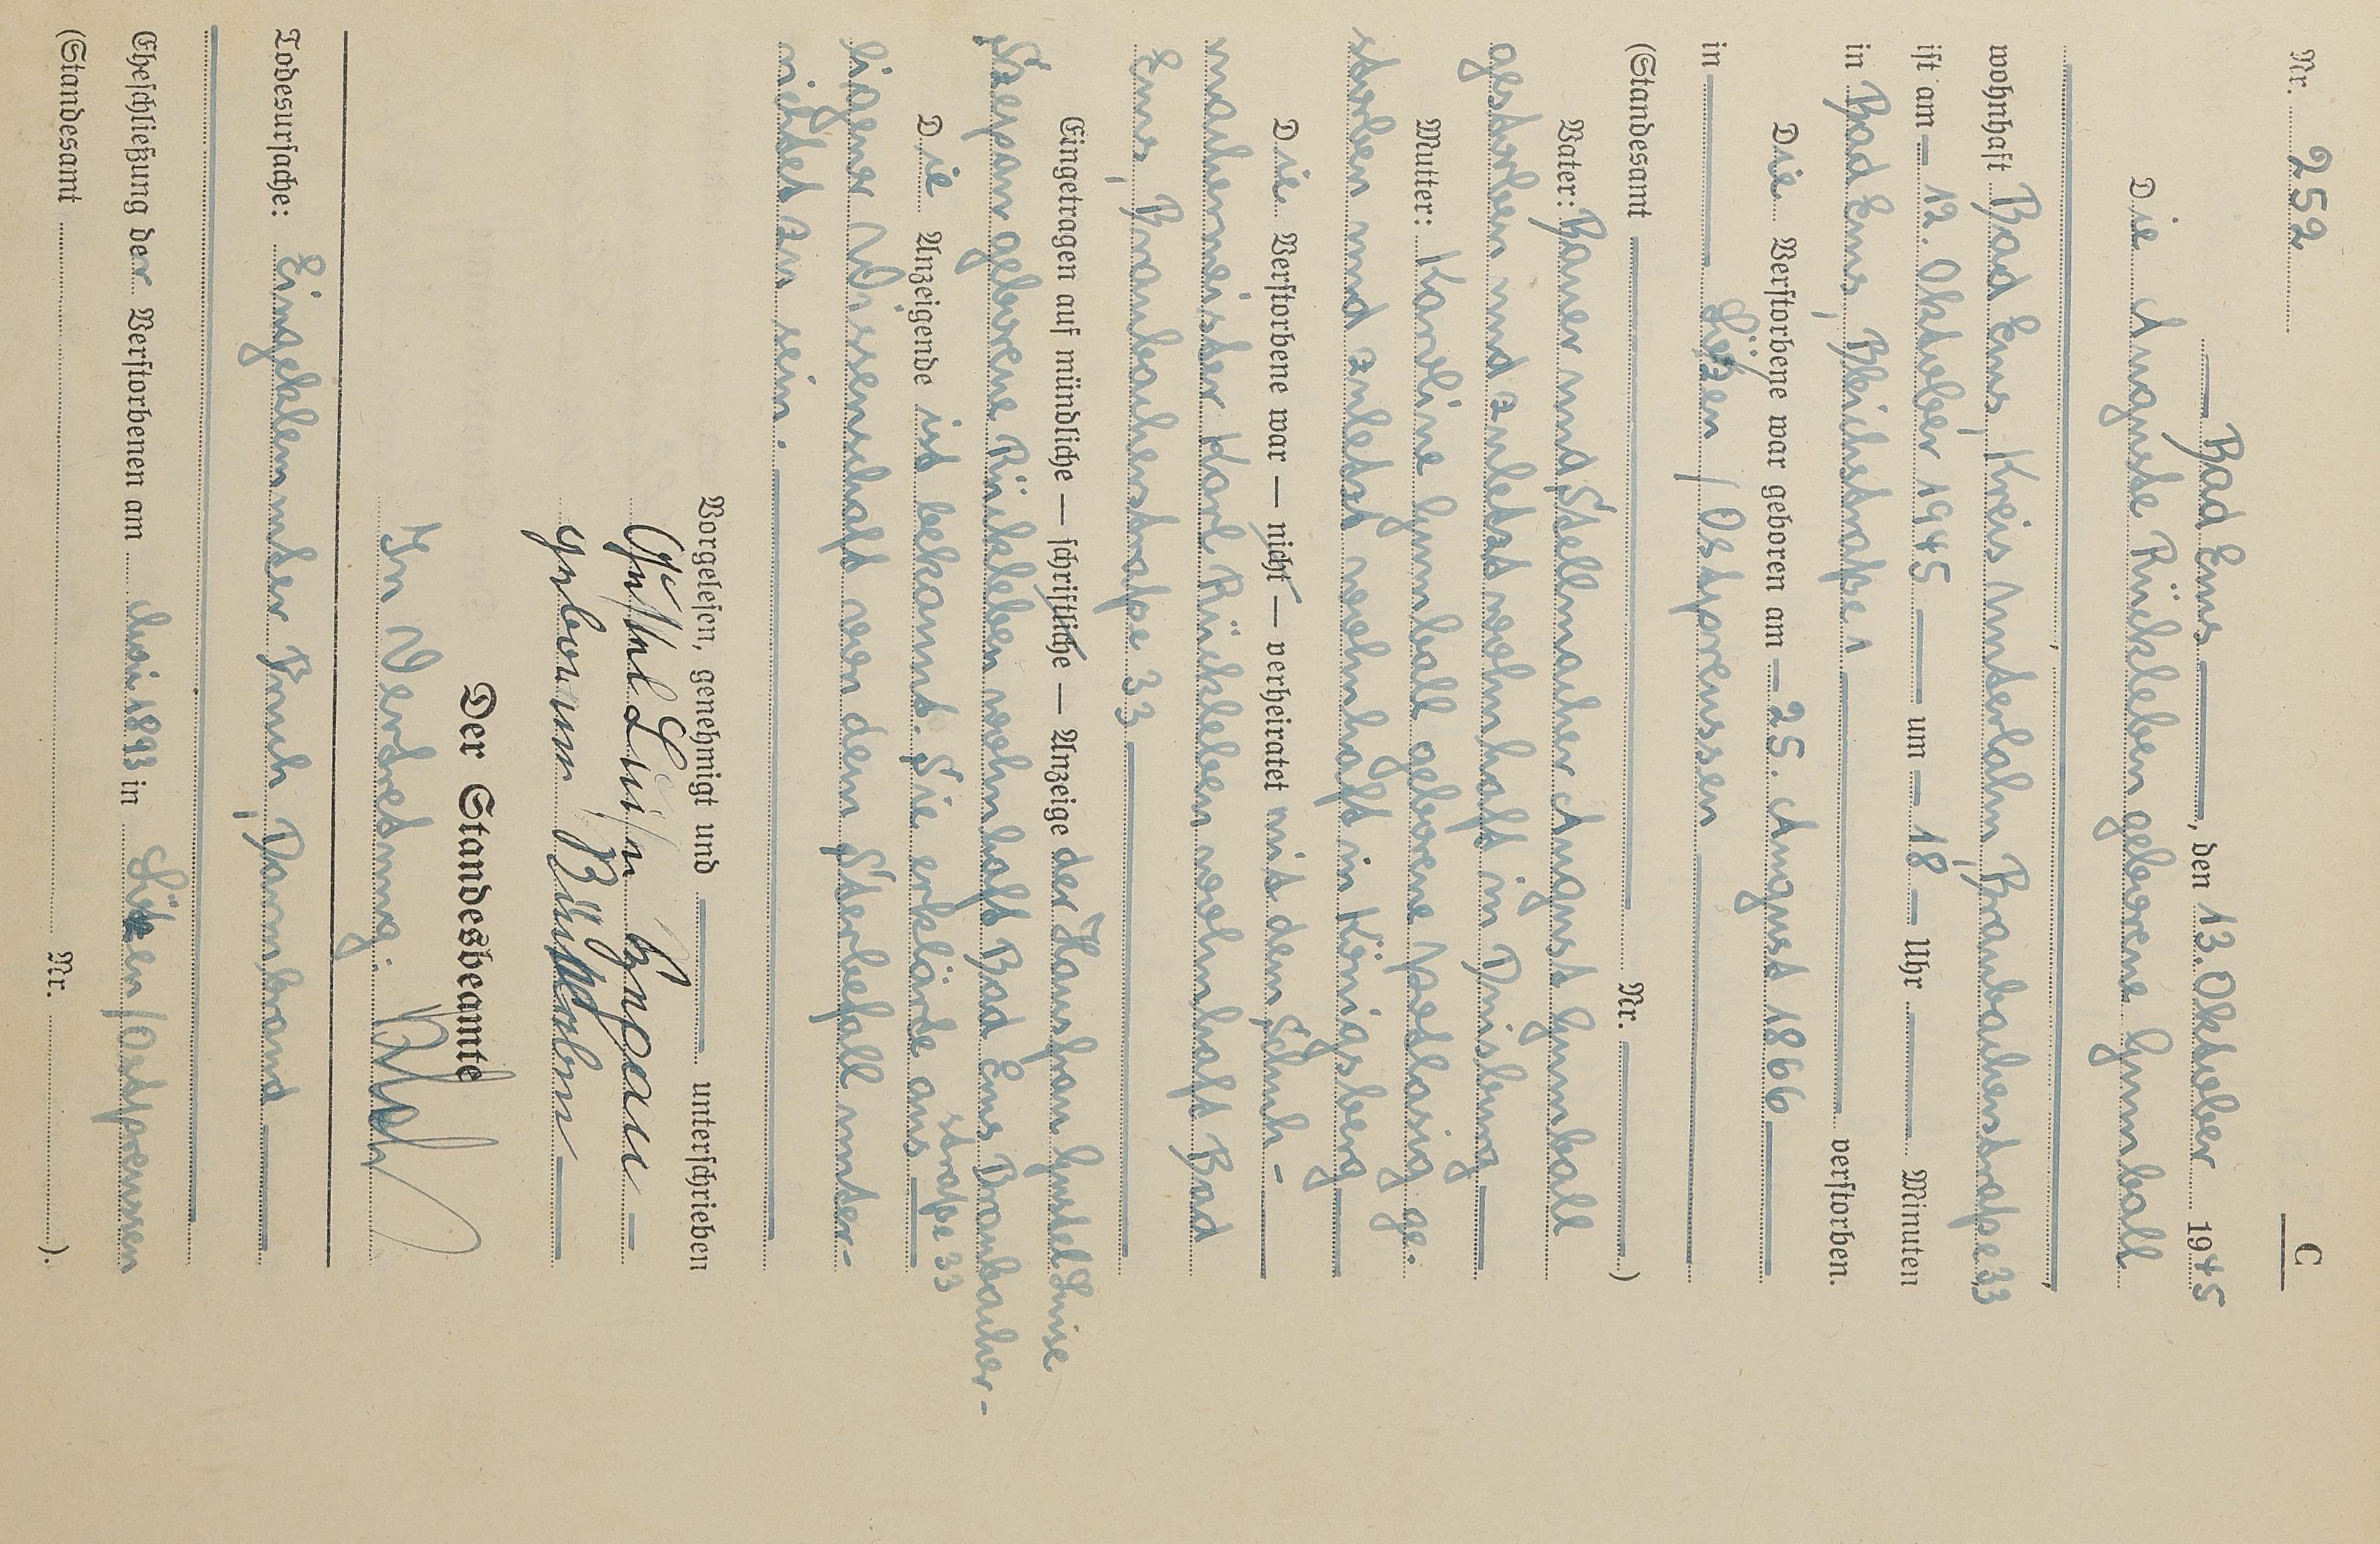 C
Nr. 252
Bad Ems, den 13. Oktober 1945
Die Auguste Rückleben geborene Gumball
wohnhaft Bad Ems, Kreis Unterlahn, Braubacherstraße 33
ist am 12. Oktober 1945 um 18 Uhr Minuten
in Bad Ems, Bleichstraße 1 verstorben.
Die Verstorbene war geboren am 25. August 1866
in Lötzen / Ostpreussen
(Standesamt Nr. )
Vater: Bauer und Stellmacher August Gumball
gestorben und zuletzt wohnhaft in Duisburg
Mutter: Karoline Gumball geborene ge-
storben und zuletzt wohnhaft in Königsberg
Die Verstorbene war — nicht — verheiratet mit dem Schuh-
machermeister Karl Rückleben wohnhaft Bad
Ems, Braubacherstraße 33
Eingetragen auf mündliche — schriftliche — Anzeige der Hausfrau Gustel Luise
geborene Rückleben wohnhaft Bad Ems Braubacher-
straße 33
Die Anzeigende ist bekannt. Sie erklärte aus
eigener Wissenschaft von dem Sterbefall unter-
richtet zu sein.
Vorgelesen, genehmigt und unterschrieben
Luise
geborene Rückleben
Der Standesbeamte
In Vertretung:
Todesursache: Eingeklemmter Bruch, Darmbrand
Eheschließung der Verstorbenen am Mai 1893 in Lötzen / Ostpreussen
(Standesamt Nr. ).